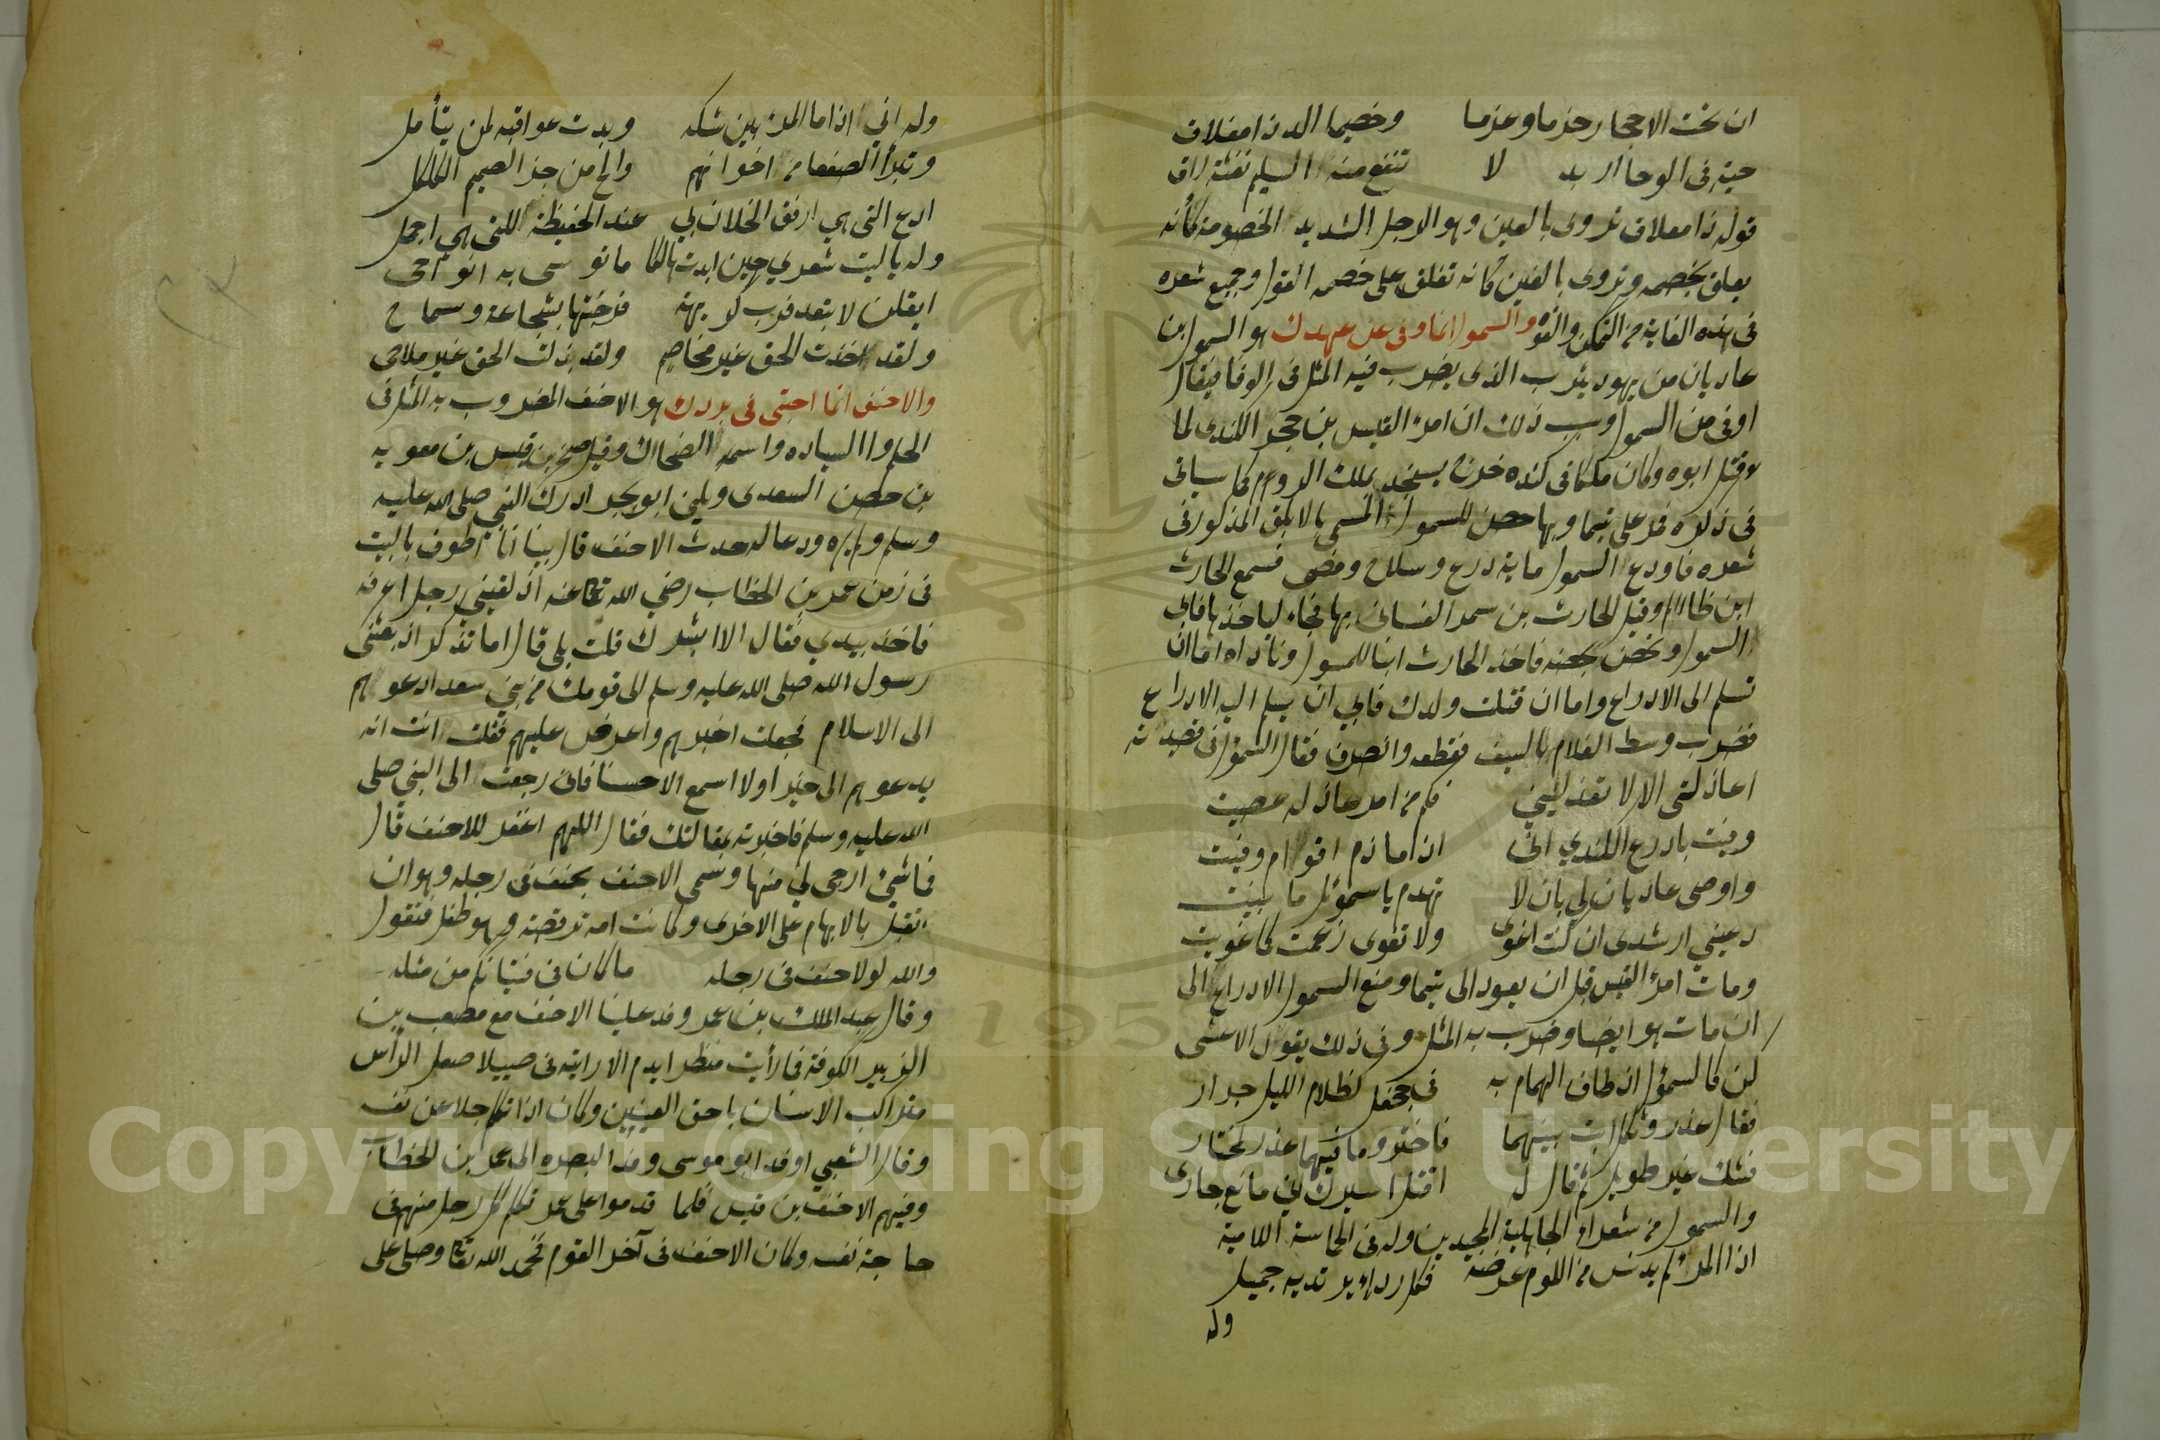 ان تحت الاحجار حزما وعزما وخصيما الد ذا مغلاق
حية في الوجار اربد لا تنفع منه السليم نفثة راق
قوله ذا معلاق يروى بالعين وهو الرجل الشديد الخصومة كأنه
يعلق بخصمه ويروى بالغين كانه تغلق على خصمه القول وجميع شعره
في هذه الغاية من التمكن والقوه والسمول انما وفى عن عهدك هو السمول بن
عاديان من يهود يثرب الذى يضرب فيه المثل في الوفا فيقال
اوفى من السمول وسبب ذلك ان امرء القيس بن حجر الكندى لما
قتل ابوه وكان ملكا في كنده خرج يستنجد بملك الروم كما سياتى
في ذكره فمر على تيما وبها حصن للسمول المسمى بالابلق المذكور في
شعره فاودع السمول ماية درع وسلاح ومضى فسمع الحارث
ابن ظالم وقيل الحارث بن سمر الغسانى بها فجاء لياخذها فابى
السمول وتحصن بحصنه فاخذ الحارث ابنا للسمول وناداه اما ان
تسلم الى الادراع واما ان قتلت ولدك فابى ان يسلم اليه الادراع
فضرب وسط الغلام بالسيف فقطعه وانصرف فقال السمؤل في قصيدته
اعاذلتى الا لا تعذليني فكم من امر عاذلة عصيت
وفيت بادرع الكندي انى اذا ما ذم اقوام وفيت
واوصى عاديا ن لي بان لا تهدم يا سموئل ما بنيت
دعيني ارشدى ان كنت اغوى ولا تقوى زعمت كما غويت
ومات امرء القيس قبل ان يعود الى تيما ومنع السمول الادراع الى
ان مات هو ايضا وضرب به المثل وفي ذلك يقول الاعشى
كن كالسمؤل اذ طاف الهمام به في جحفل كظلام الليل جرار
فقال غدر وثكل انت بينهما فاختر وما فيهما عذر لمختار
فشك غير طويل ثم قال له اقتل اسيرك اني مانع جارى
والسمول من شعراء الجاهلية المجيدين وله في الحماسة اللامية
اذا المرء لم يدنس من اللوم عرضه فكل رداء يرتديه جميل
وله
وله اني اذا ما المرء بين شكه وبدت عواقبه لمن يتأمل
وتبرأ الضعفا من اخوانهم والح من حر الصميم الكلكل
ادع التى هي ارفق الخلان لي عند الحفيظة للتي هي اجمل
وله يا ليت شعري حين اندب هالكا ما نوسى به انواحى
ايقلن لا تبعد فرب كريهة فرجتها بشجاعة وسماح
ولقد اخذت الحق غير مخاصم ولقد بذلت الحق غير ملاحى
والاحنف انما احتبى في بردك هو الاحنف المضروب به المثل في
الحلم والسياده واسمه الضحاك وقيل صخر بن قيس بن معويه
بن حصن السعدى ويكنى ابو بحر ادرك النبي صلى الله عليه
وسلم ولم يره ودعا له حدث الاحنف قال بينا انا اطوف بالبيت
في زمن عمر بن الخطاب رضي الله تعا عنه اذ لقيني رجل اعرفه
فاخذ بيدي فقال الا ابشرك قلت بلى قال اما تذكر اذ بعثنى
رسول الله صلى الله عليه وسلم الى قومك من بني سعد ادعوهم
الى الاسلام فجعلت اخبرهم واعرض عليهم فقلت انت انه
يدعوهم الى خير اولا اسمع الا حسنا فانى رجعت الى النبي صلى
الله عليه وسلم فاخبرته بمقالتك فقال اللهم اغفر للاحنف قال
فما شئ ارجى لي منها وسمى الاحنف بحنف في رجله وهو ان
تقبل بالابهام على الاخرى وكانت امه ترقصه وهو طفل فتقول
والله لولا حنف في رجله ما كان في فتيانكم من مثله
وقال عبد الملك بن عمر وفد علينا الاحنف مع مصعب بن
الزبير الكوفة فما رأيت منظرا يذم الا رايته فى صييلا صعل الرأس
متراكب الاسنان باحق العينين وكان اذا تكلم جلا عن نفسه
وقال الشعبي اوفد ابو موسى وفد البصره الى عمر بن الخطاب
وفيهم الاحنف بن قيس فلما قدموا على عمر تكلم كل رجل منهم في
حاجة نفسه وكان الاحنف في آخر القوم فحمد الله تعا وصلى على
Copyright © King Saud University
1957